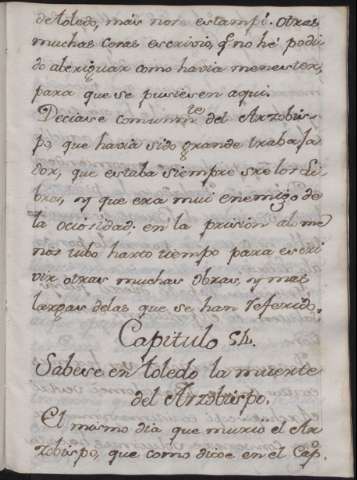 de toledo, mas non estampi. otras
muchas cosas escrivio, q̃ no hé podi
do aberiguar como havia menester,
para que se pusiesen aqui.
Deciase comunmte del Arzobis-
po, que havia sido grande trabaja
dor, que estaba siempre sre los Li
bros, y que era mui enemigo de
la ociosidad; en la prision alme
nos tubo harto tiempo para escri
vir otras muchas obras, y mas
largas delas que se han referido.
Capitulo 54.
Sabese en toledo la muerte
del Arzobispo.
El mismo dia que murio el Ar
zobispo, que como dixe en el Cap.